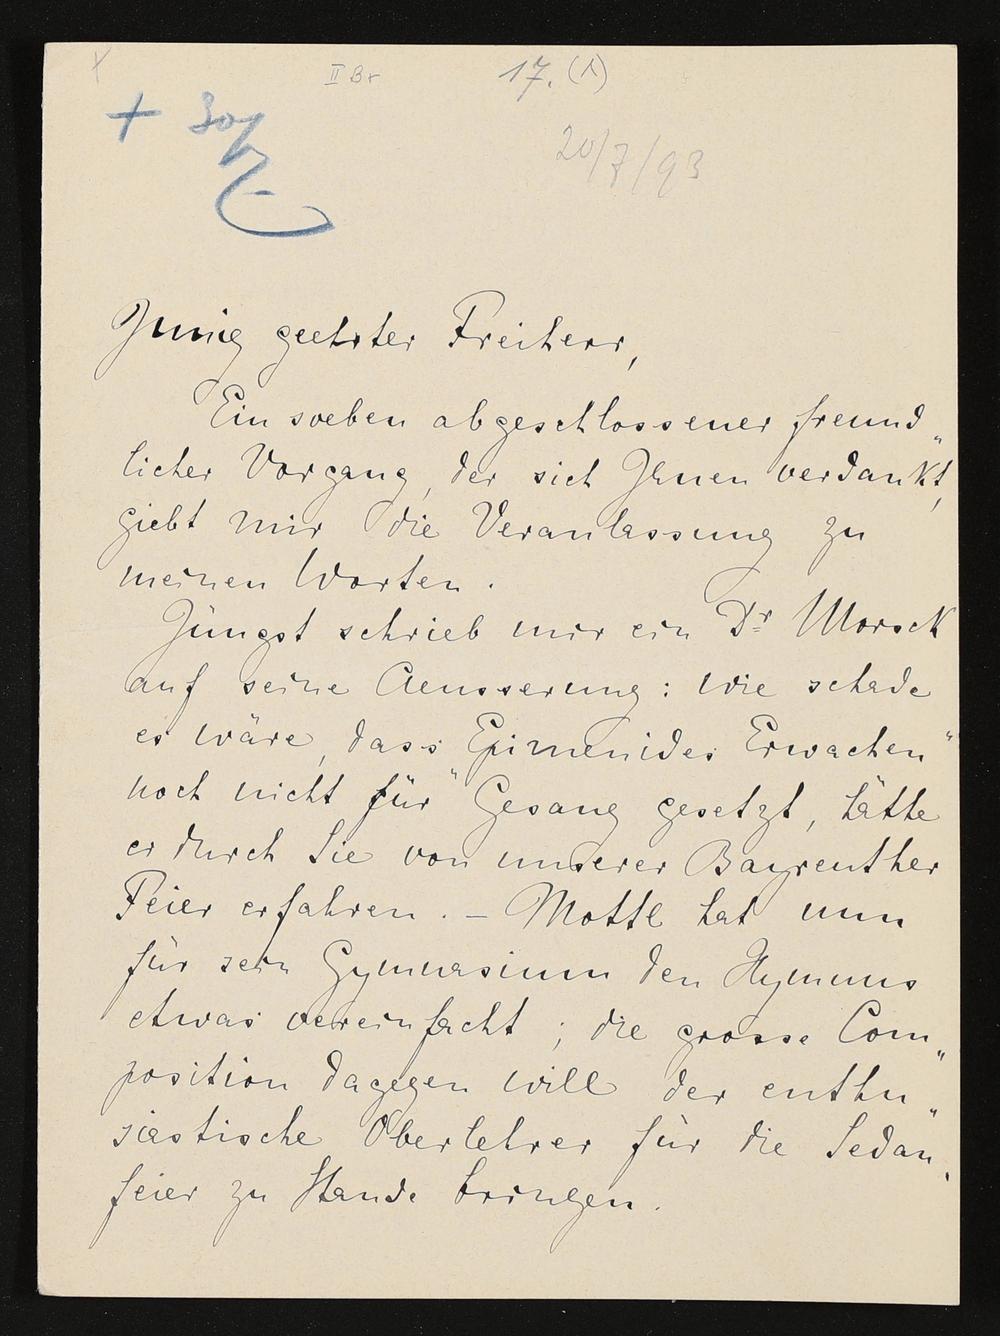 II Br 17. (1)
20/7/93
Innig geehrter Freiherr,
Ein soeben abgeschlossener freund„
licher Vorgang, der sich Ihnen verdankt,
giebt mir die Veranlassung zu
meinen Worten.
Jüngst schrieb mir ein Dr Morsch
auf seine Aeusserung: wie schade
es wäre, dass "Epimenides Erwachen"
noch nicht für Gesang gesetzt, hätte
er durch Sie von unserer Bayreuther
Feier erfahren. – Mottl hat nun
für sein Gymnasium den Hymnus
etwas vereinfacht; die grosse Com„
position dagegen will der enthu„
siastische Oberlehrer für die Sedan„
feier zu Stande bringen.